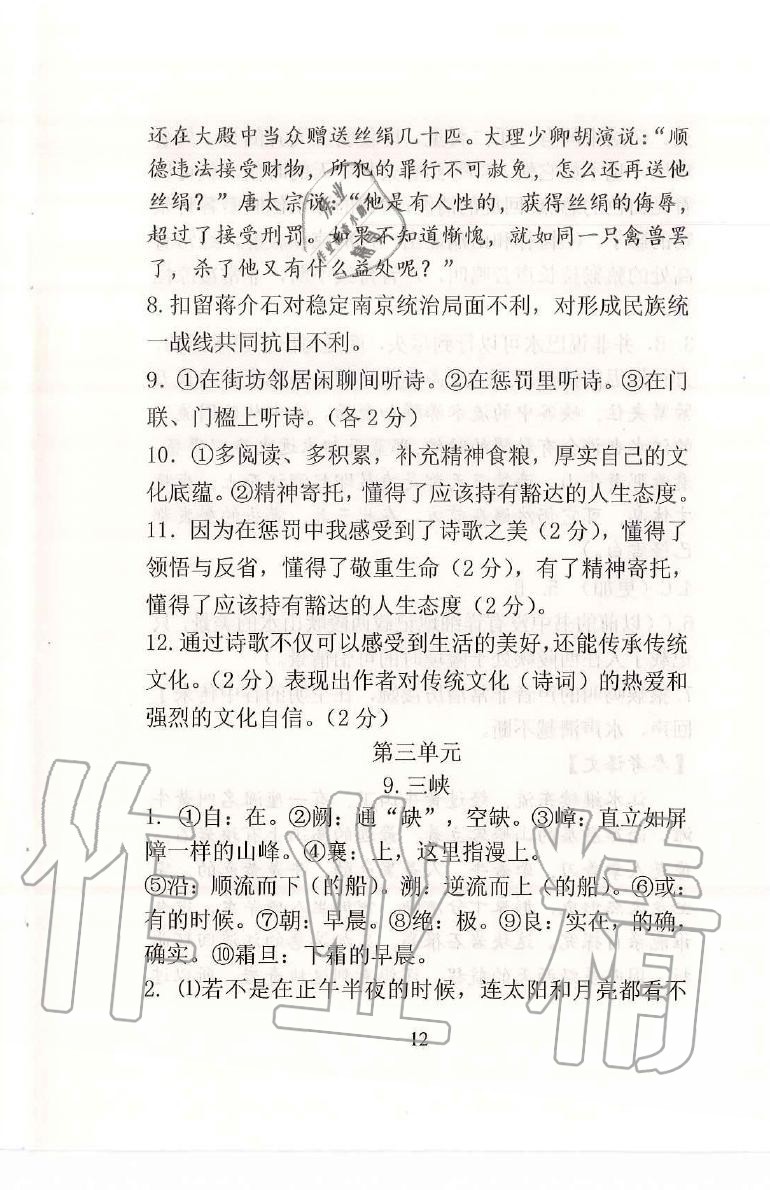 还在大殿中当众赠送丝绢几十匹。大理少卿胡演说：“顺
德违法接受财物，所犯的罪行不可赦免，怎么还再送他
丝绢？”唐太宗说：“他是有人性的，获得丝绢的侮辱，
超过了接受刑罚。如果不知道惭愧，就如同一只禽兽罢
了，杀了他又有什么益处呢？”
8. 扣留蒋介石对稳定南京统治局面不利，对形成民族统
一战线共同抗日不利。
9. ①在街坊邻居闲聊间听诗。②在惩罚里听诗。③在门
联、门楹上听诗。（各2分）
10. ①多阅读、多积累，补充精神食粮，厚实自己的文
化底蕴。②精神寄托，懂得了应该持有豁达的人生态度。
11. 因为在惩罚中我感受到了诗歌之美（2分），懂得了
领悟与反省，懂得了敬重生命（2分），有了精神寄托，
懂得了应该持有豁达的人生态度（2分）。
12. 通过诗歌不仅可以感受到生活的美好，还能传承传统
文化。（2分）表现出作者对传统文化（诗词）的热爱和
强烈的文化自信。（2分）
第三单元
9. 三峡
1. ①自：在。②阙：通“缺”，空缺。③嶂：直立如屏
障一样的山峰。④襄：上，这里指漫上。
⑤沿：顺流而下（的船）。溯：逆流而上（的船）。⑥或：
有的时候。⑦朝：早晨。⑧绝：极。⑨良：实在，的确，
确实。⑩霜旦：下霜的早晨。
2. ⑴若不是在正午半夜的时候，连太阳和月亮都看不
12
作业精